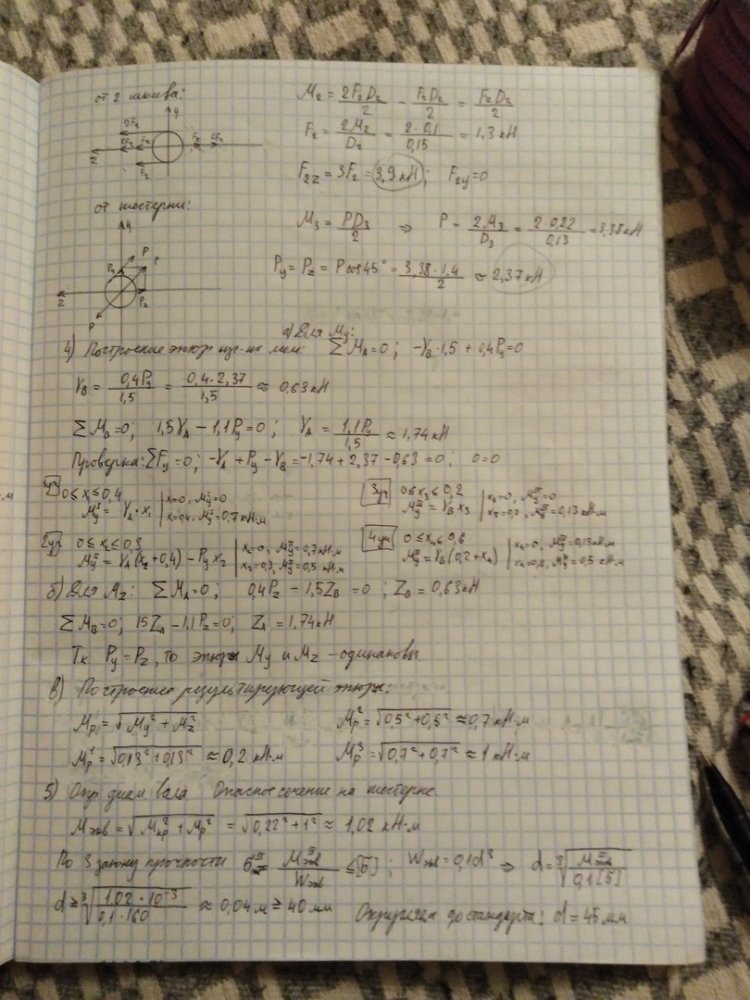 от 2 шкива:
M₂ = 2F₂D₂/2 − F₂D₂/2 = F₂D₂/2
y
2F₂
F₂
z
F₂ = 2M₂/D₂ = 2·0,1/0,15 = 1,3 кН
F₂z = 3F₂ = 3,9 кН; F₂y = 0
от шестерни:
M₃ = PD₃/2 ⇒ P = 2M₃/D₃ = 2·0,22/0,13 = 3,38 кН
y
P
z
Py = Pz = P cos45° = 3,38·1,4/2 ≈ 2,37 кН
а) Для My:
4) Построение эпюр изг-их мом: ΣMA = 0; −YB·1,5 + 0,4Py = 0
YB = 0,4Py/1,5 = 0,4·2,37/1,5 ≈ 0,63 кН
ΣMB = 0; 1,5YA − 1,1Py = 0; YA = 1,1Py/1,5 ≈ 1,74 кН
Проверка: ΣFy = 0; −YA + Py − YB = −1,74 + 2,37 − 0,63 = 0, 0 = 0
1уч 0 ≤ x₁ ≤ 0,4
MyI = YA·x₁ | x=0, MyI=0
x=0,4, MyI=0,7 кН·м
3уч 0 ≤ x₃ ≤ 0,2
MyIII = YB x₃ | x₃=0, MyIII=0
x₃=0,2, MyIII=0,13 кН·м
2уч 0 ≤ x₂ ≤ 0,3
MyII = YA(x₂+0,4) − Py x₂ | x₂=0, MyII=0,7 кН·м
x₂=0,3, MyII=0,5 кН·м
4уч 0 ≤ x₄ ≤ 0,6
My = YB(0,2+x₄) | x₄=0, My=0,13 кН·м
x₄=0,6, My=0,5 кН·м
б) Для Mz: ΣMA = 0; 0,4Pz − 1,5ZB = 0; ZB = 0,63 кН
ΣMB = 0; 15ZA − 1,1Pz = 0; ZA = 1,74 кН
Тк Py = Pz, то эпюры My и Mz – одинаковы
в) Построение результирующей эпюры:
Mp = √(My² + Mz²)
Mp² = √(0,5² + 0,5²) ≈ 0,7 кН·м
Mp¹ = √(0,13² + 0,13²) ≈ 0,2 кН·м
Mp³ = √(0,7² + 0,7²) ≈ 1 кН·м
5) Опр диам вала Опасное сечение на шестерне
Mэкв = √(Mкр² + Mp²) = √(0,22² + 1²) ≈ 1,02 кН·м
По 3 закону прочности σIII = MэквIII/Wэкв ≤ [σ]; Wэкв = 0,1d³ ⇒ d = ∛(MэквIII/0,1[σ])
d ≥ ∛(1,02·10⁻³/0,1·160) ≈ 0,04 м ≥ 40 мм Округляем до стандарта: d = 45 мм